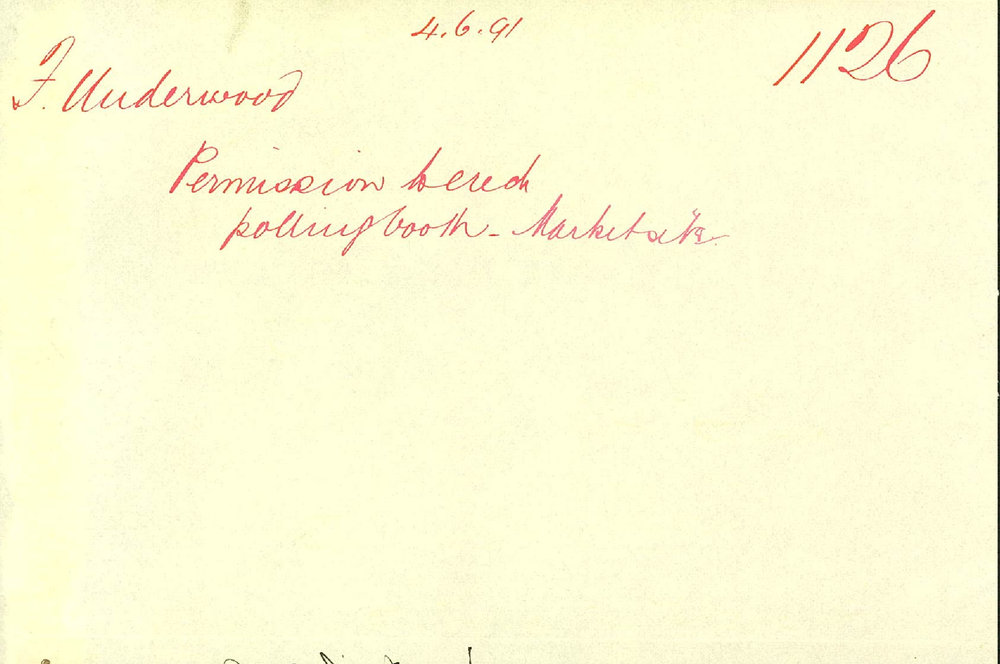 4.6.91
1126
F. Underwood
Permission to erect
polling booth - Market site